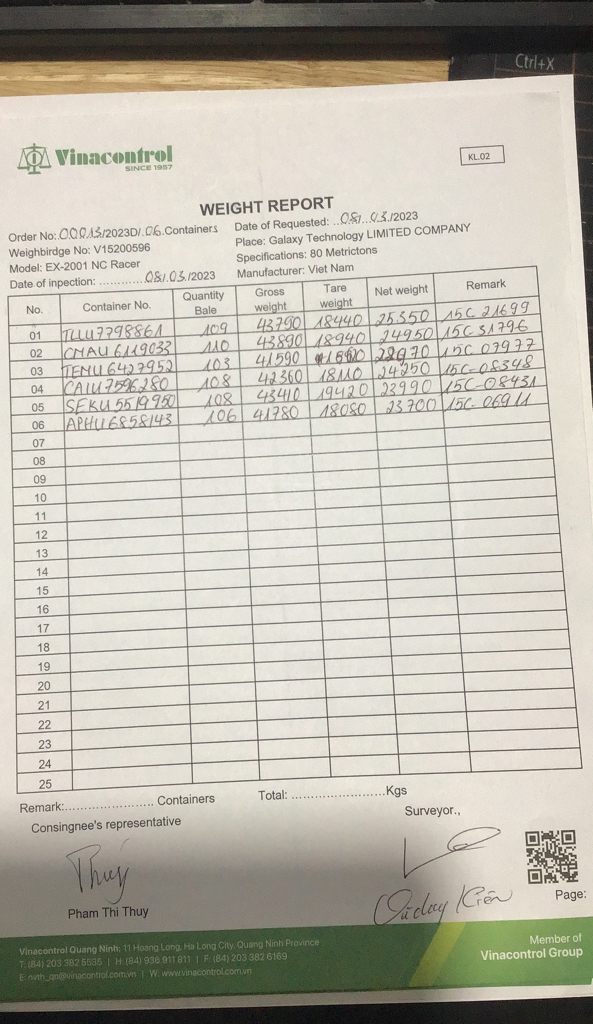 Ctrl+X
Vinacontrol
SINCE 1957
KL.02
WEIGHT REPORT
Order No: 00013/2023D/.06.Containers
Date of Requested: ..08/..03./2023
Weighbirdge No: V15200596
Place: Galaxy Technology LIMITED COMPANY
Model: EX-2001 NC Racer
Specifications: 80 Metrictons
Date of inpection: ............08/.03./2023
Manufacturer: Viet Nam
No. Container No. Quantity Bale Gross weight Tare weight Net weight Remark
01 TLLU7798861 109 43790 18440 25350 15C 21699
02 CMAU 6119033 110 43890 18940 24950 15C 31796
03 TEMU 6427952 103 41590 15C 07977
04 CAIU7596280 108 42360 18110 24250 15C-08348
05 SEKU5519950 108 43410 19420 23990 15C-08431
06 APHU6858143 106 41780 18080 23700 15C-06911
07
08
09
10
11
12
13
14
15
16
17
18
19
20
21
22
23
24
25
Remark:........................ Containers Total: .........................Kgs
Consingnee's representative
Surveyor.,
Thuý
Pham Thi Thuy
Page:
Vinacontrol Quang Ninh: 11 Hoang Long, Ha Long City, Quang Ninh Province
T: (84) 203 382 5535 | H: (84) 936 911 811 | F: (84) 203 382 6169
E: nvth_qn@vinacontrol.com.vn | W: www.vinacontrol.com.vn
Member of
Vinacontrol Group